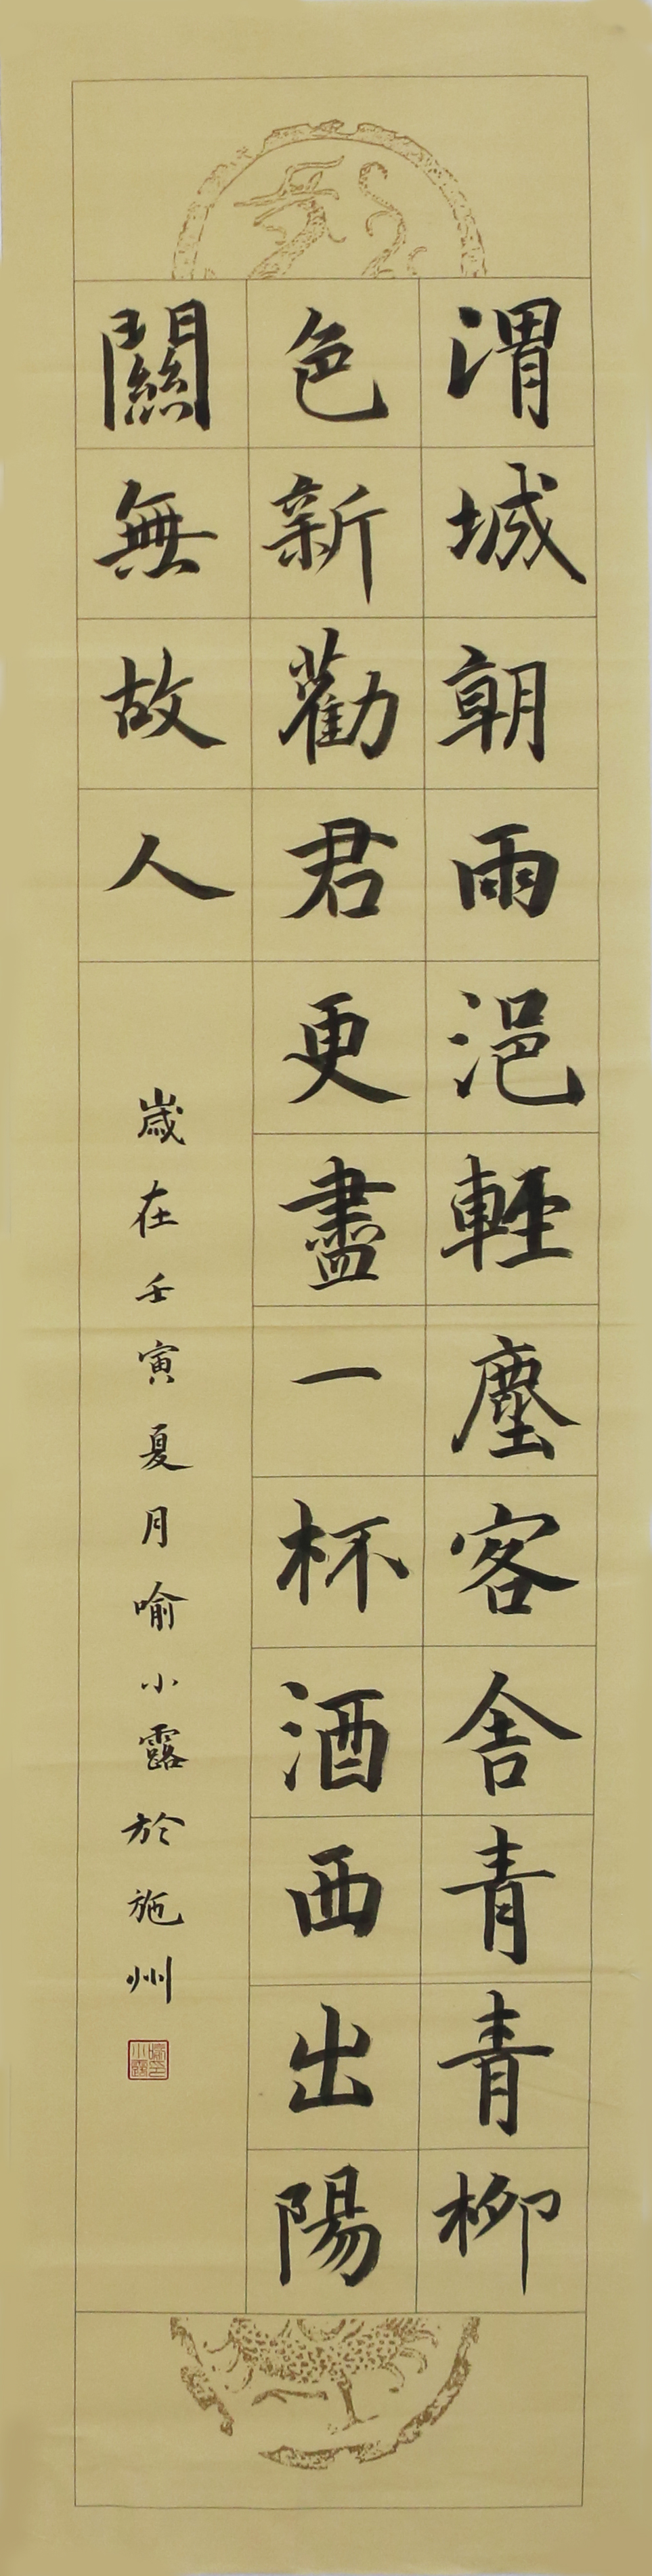 渭城朝雨浥輕塵客舍青青柳
色新勸君更盡一杯酒西出陽
關無故人
歲在壬寅夏月喻小露於施州
喻小露印